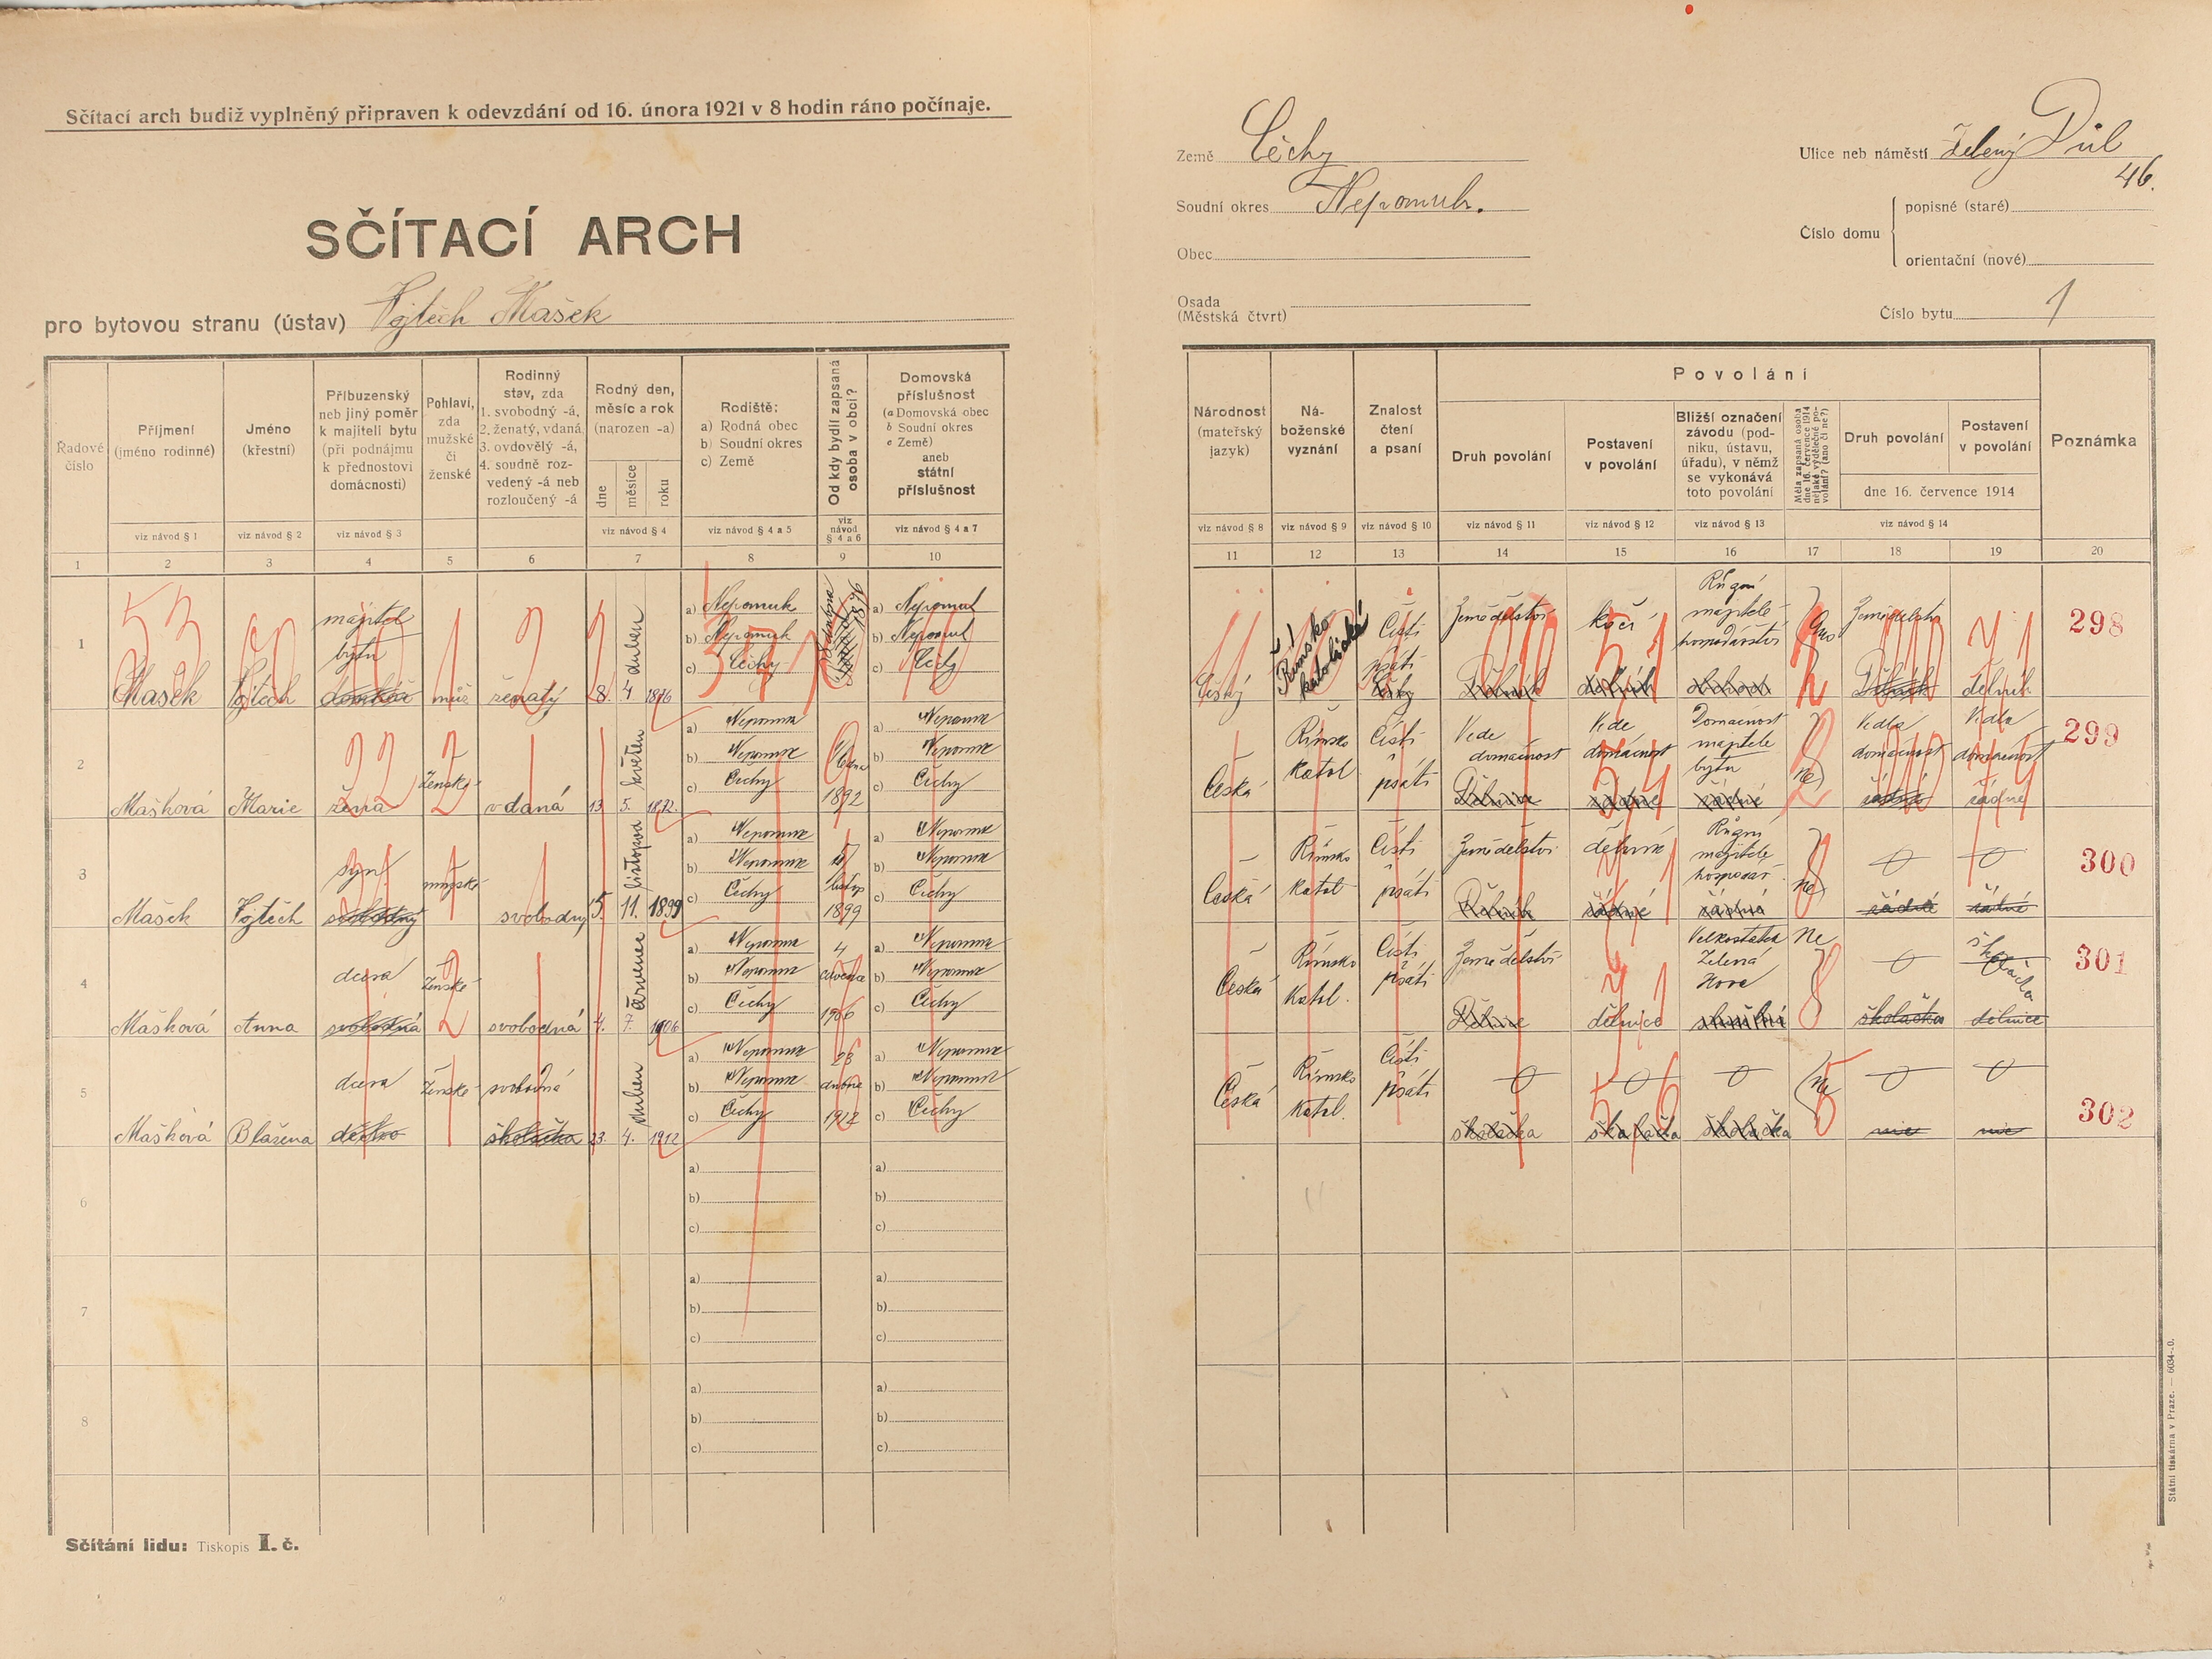 Sčítací arch budiž vyplněný připraven k odevzdání od 16. února 1921 v 8 hodin ráno počínaje.
SČÍTACÍ ARCH
pro bytovou stranu (ústav) Vojtěch Mašek
Země Čechy
Soudní okres Nepomuk.
Obec
Osada
(Městská čtvrt)
Ulice neb náměstí Zelený Důl
46.
Číslo domu
popisné (staré)
orientační (nové)
Číslo bytu 1
Řadové číslo
Příjmení (jméno rodinné)
Jméno (křestní)
Příbuzenský neb jiný poměr k majiteli bytu (při podnájmu k přednostovi domácnosti)
Pohlaví, zda mužské či ženské
Rodinný stav, zda 1. svobodný -á, 2. ženatý, vdaná, 3. ovdovělý -á, 4. soudně rozvedený -á neb rozloučený -á
Rodný den, měsíc a rok (narozen -a)
dne měsíce roku
Rodiště:
a) Rodná obec
b) Soudní okres
c) Země
Od kdy bydlí zapsaná osoba v obci?
Domovská příslušnost
(a Domovská obec
b Soudní okres
c Země)
aneb
státní příslušnost
viz návod § 1 viz návod § 2 viz návod § 3 viz návod § 4 viz návod § 4 a 5 viz návod § 4 a 6 viz návod § 4 a 7
1 2 3 4 5 6 7 8 9 10
Národnost (mateřský jazyk)
Náboženské vyznání
Znalost čtení a psaní
Povolání
Druh povolání
Postavení v povolání
Bližší označení závodu (podniku, ústavu, úřadu), v němž se vykonává toto povolání
Měla zapsaná osoba dne 16. července 1914 nějaké výdělečné povolání? (ano či ne?)
Druh povolání
Postavení v povolání
dne 16. července 1914
Poznámka
viz návod § 8 viz návod § 9 viz návod § 10 viz návod § 11 viz návod § 12 viz návod § 13 viz návod § 14
11 12 13 14 15 16 17 18 19 20
1 Mašek Vojtěch majitel bytu muž ženatý 8. 4 duben 1876
a) Nepomuk
b) Nepomuk
c) Čechy
a) Nepomuk
b) Nepomuk
c) Čechy
Český Římsko katolické Čísti psáti Zemědělství kočí majitele hospodářství Ano Zemědělství dělník 298
2 Mašková Marie žena Ženské vdaná 13. 5. květen 1872.
a) Nepomuk
b) Nepomuk
c) Čechy
1892
a) Nepomuk
b) Nepomuk
c) Čechy
Česká Římsko katol. Čísti psáti Vede domácnost Vede domácnost Domácnost majitele bytu ne Vedla domácnost Vedla domácnost 299
3 Mašek Vojtěch syn mužské svobodný 15. 11. listopad 1899
a) Nepomuk
b) Nepomuk
c) Čechy
15 listop 1899
a) Nepomuk
b) Nepomuk
c) Čechy
Česká Římsko katol Čísti psáti Zemědělství dělník majitele hospodář. ne 0 0 300
4 Mašková Anna dcera svobodná Ženské svobodná 4. 7. červenec 1906
a) Nepomuk
b) Nepomuk
c) Čechy
4 července 1906
a) Nepomuk
b) Nepomuk
c) Čechy
Česká Římsko Katol. Čísti psáti Zemědělství dělnice Velkostatek Zelená Hora Ne 0 školačka školačka dělnice 301
5 Mašková Blažena dcera Ženské svobodná školačka 23. 4. duben 1912
a) Nepomuk
b) Nepomuk
c) Čechy
23 dubna 1912
a) Nepomuk
b) Nepomuk
c) Čechy
Česká Římsko Katol. Čísti psáti 0 0 0 ne 0 0 školačka školačka školačka 302
6
a)
b)
c)
a)
b)
c)
7
a)
b)
c)
a)
b)
c)
8
a)
b)
c)
a)
b)
c)
Sčítání lidu: Tiskopis I. č.
Státní tiskárna v Praze. — 6034-0.